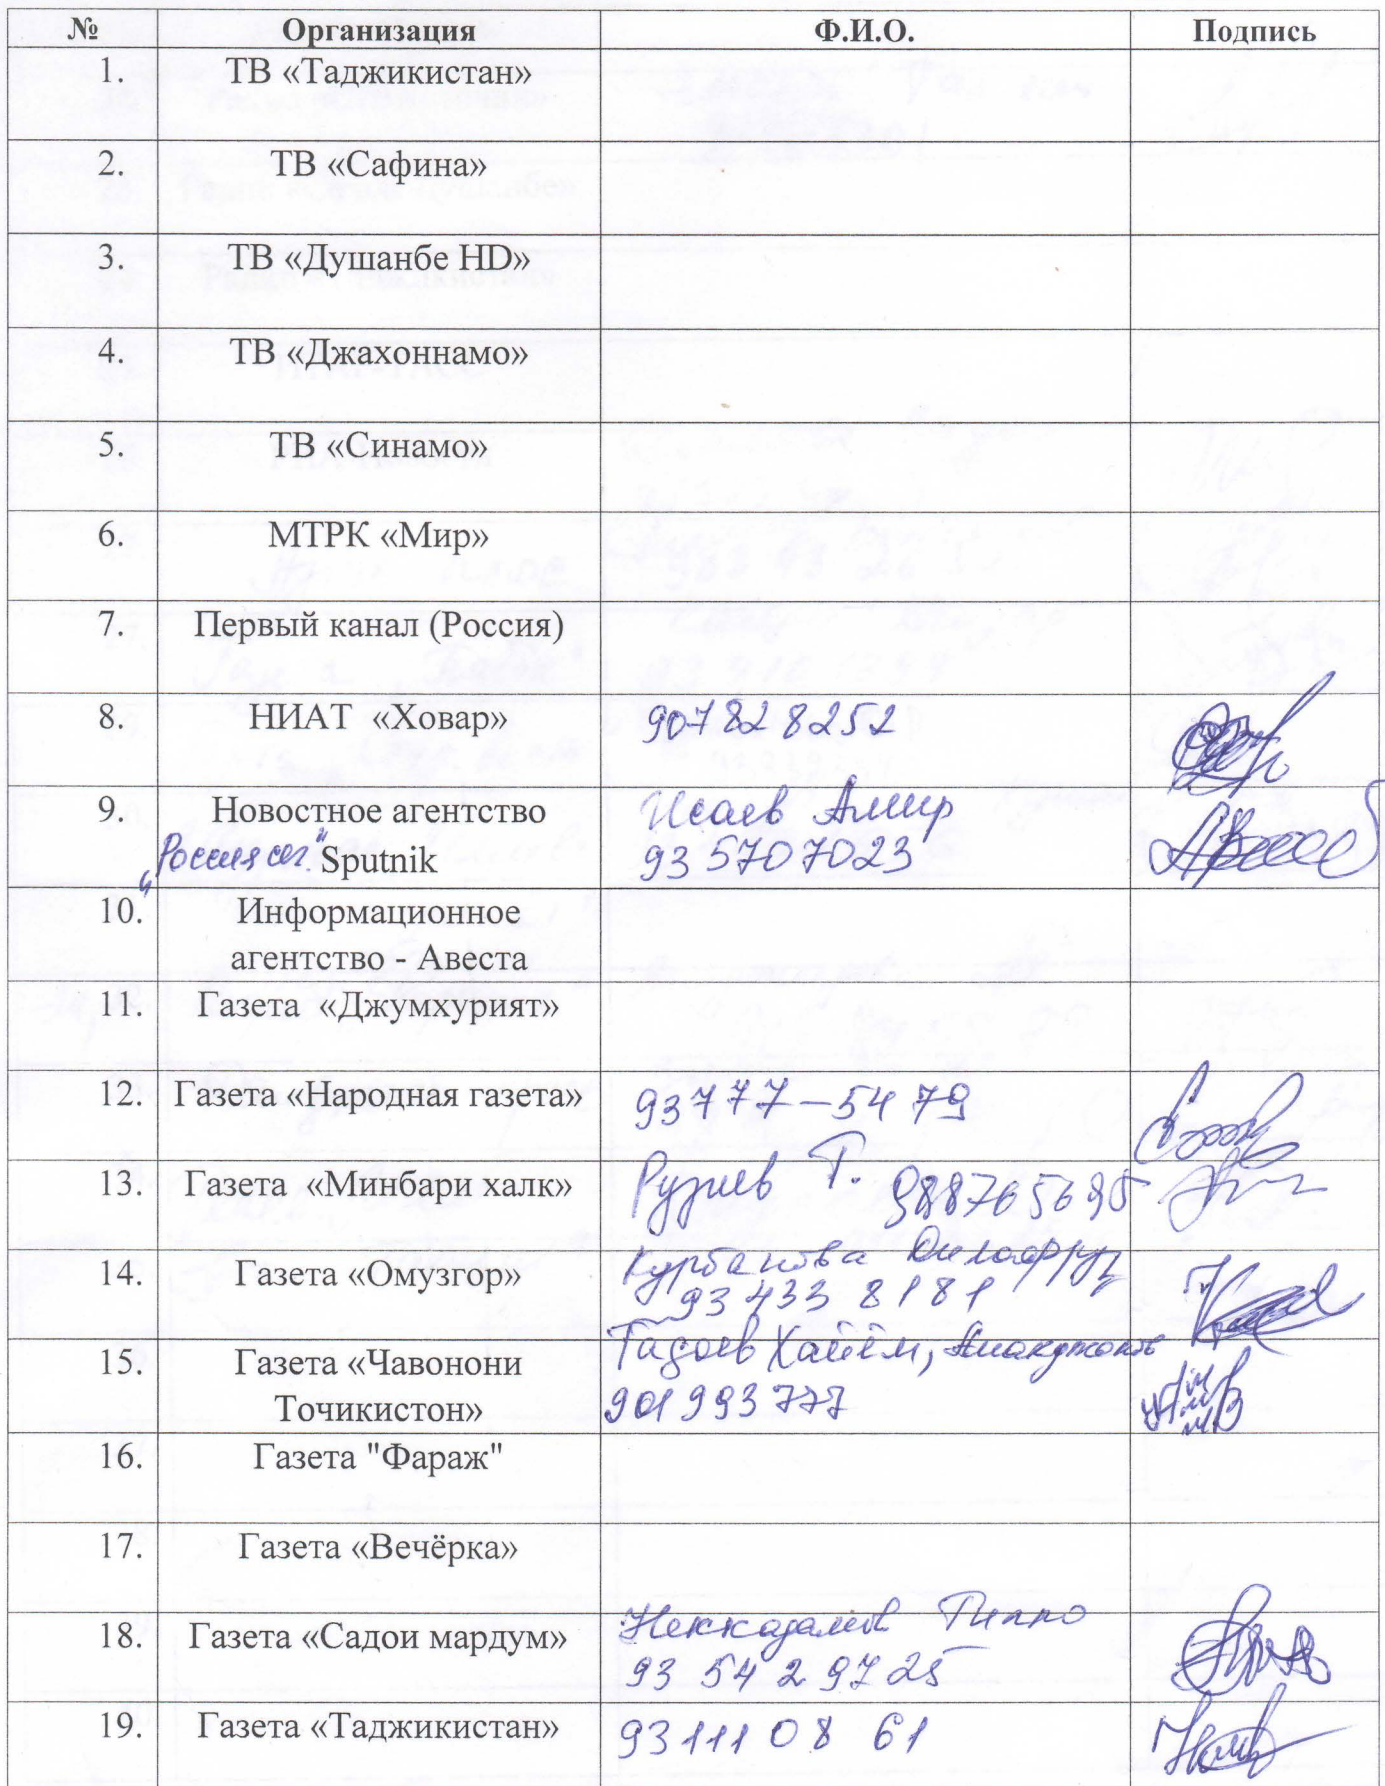 № Организация Ф.И.О. Подпись
1. ТВ «Таджикистан»
2. ТВ «Сафина»
3. ТВ «Душанбе HD»
4. ТВ «Джахоннамо»
5. ТВ «Синамо»
6. МТРК «Мир»
7. Первый канал (Россия)
8. НИАТ «Ховар» 907828252
9. Новостное агентство Исаев Амир
"Россия сег." Sputnik 93 5707023
10. Информационное
агентство - Авеста
11. Газета «Джумхурият»
12. Газета «Народная газета» 93777-5479
13. Газета «Минбари халк» Рузиев Т. 988765695
Курбанова Дилафруз
14. Газета «Омузгор» 93 433 8181
15. Газета «Чавонони Тадоев Хайём,
Точикистон» 901993777
16. Газета "Фараж"
17. Газета «Вечёрка»
18. Газета «Садои мардум» Неккадамов
93 54 2 97 25
19. Газета «Таджикистан» 931110861